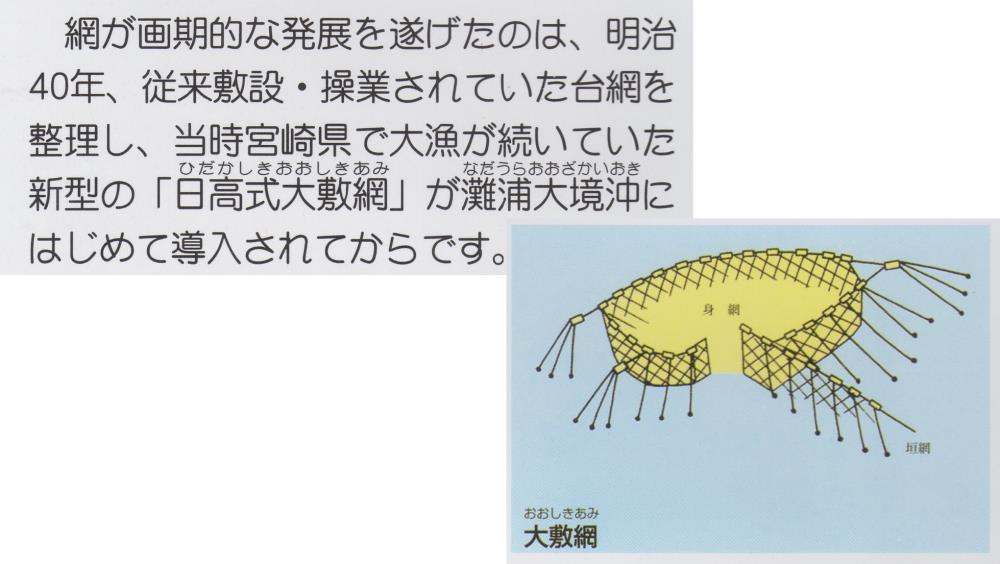 網が画期的な発展を遂げたのは、明治
40年、従来敷設・操業されていた台網を
整理し、当時宮崎県で大漁が続いていた
ひだかしきおおしきあみ なだうらおおざかいおき
新型の「日高式大敷網」が灘浦大境沖に
はじめて導入されてからです。
身網
垣網
おおしきあみ
大敷網